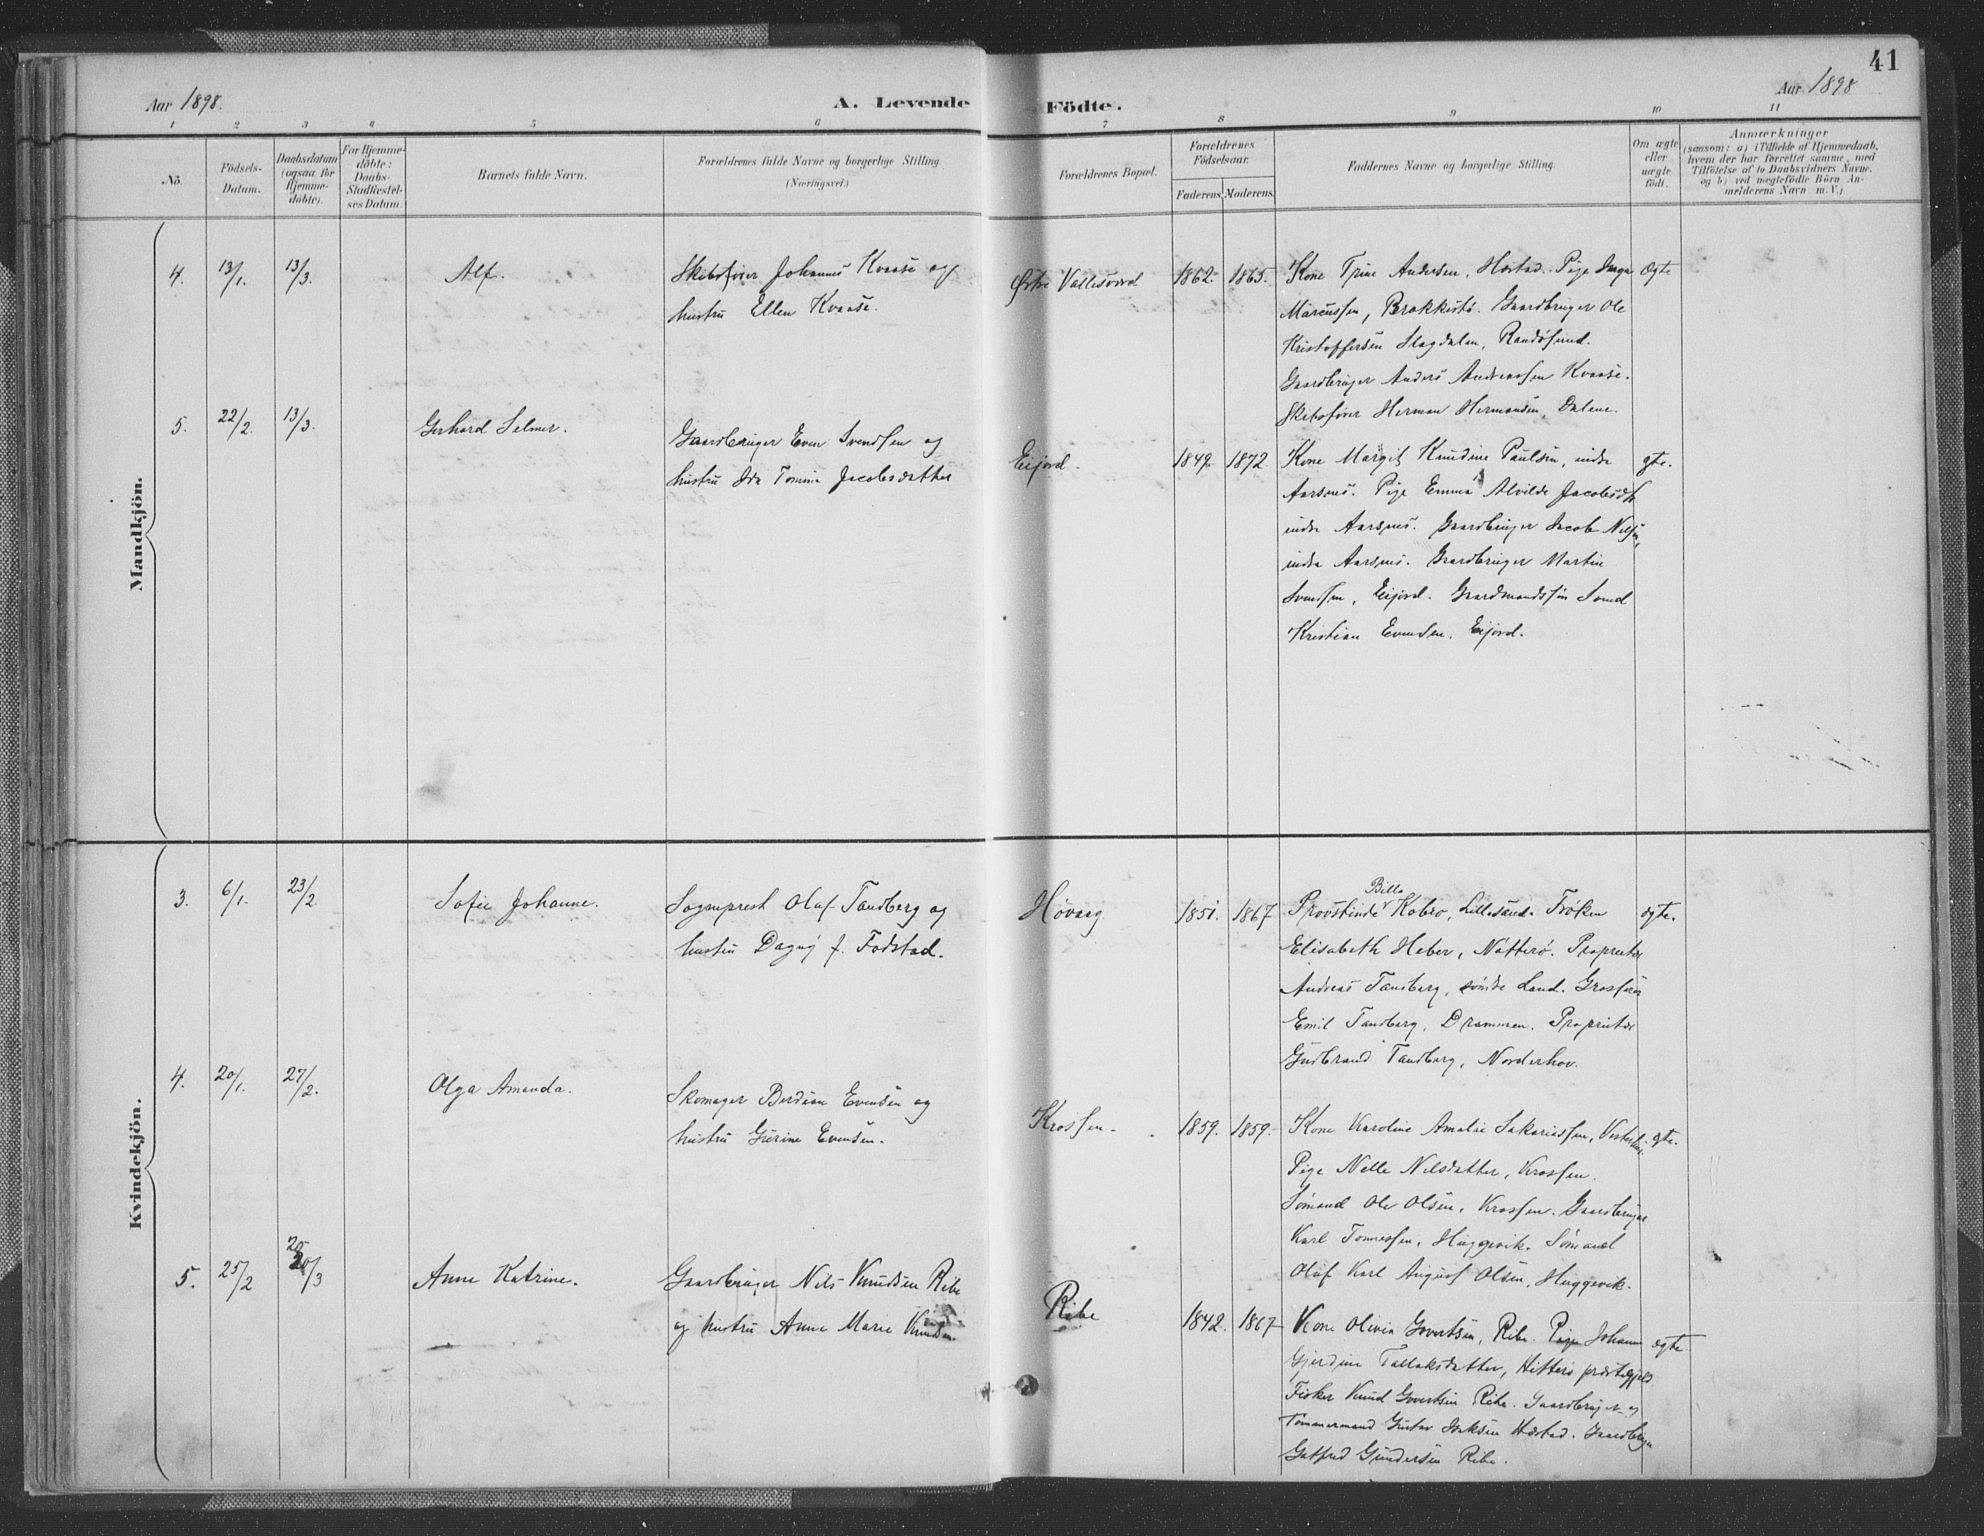 41
Aar 1898.
A. Levende Födte.
Aar 1898
1 2 3 4 5 6 7 8 9 10 11
No.
Födsels-Datum.
Daabsdatum (ogsaa for Hjemme-döbte).
For Hjemme-döbte: Daabs-Stadfæstel-ses Datum.
Barnets fulde Navn.
Forældrenes fulde Navne og borgerlige Stilling.
(Næringsvei.)
Forældrenes Bopæl.
Forældrenes Födselsaar.
Faderens. Moderens.
Faddernes Navne og borgerlige Stilling.
Om ægte eller uægte födt.
Anmærkninger
(saasom: a) i Tilfælde af Hjemmedaab,
hvem der har forrettet samme, med
Tilföielse af to Daabsvidners Navne.
og b) ved uægtefödte Börn An-
melderens Navn m. V.)
Mandkjön.
4. 13/1. 13/3. Alf.
Skibsfører Johannes Kvaase og
hustru Ellen Kvaase.
Østre Vallesværd 1862. 1865.
Kone Trine Andersen, Hæstad. Pige Inga
Marcussen, Brækkestø. Gaardbruger Ole
Kristoffersen Slagdalen, Randøsund.
Gaardbruger Anders Andreassen Kvaase.
Skibsfører Herman Hermansen, Dalene.
Ægte
5. 22/2. 13/3. Gerhard Selmer.
Gaardbruger Even Svendsen og
hustru Ida Tomine Jacobsdatter
Eijord. 1849 1872
Kone Margit Knudine Paulsen, indre
Aarsnes. Pige Emma Alvilde Jacobsdtr
indre Aarsnes. Gaardbruger Jacob Nilsen,
indre Aarsnes. Gaardbruger Martin
Svendsen, Eijord. Gaardmandssøn Svend
Kristian Evensen, Eijord.
ægte.
Kvindekjön.
3. 6/1. 23/2 Sofie Johanne.
Sogneprest Oluf Tandberg og
hustru Dagny f. Fodstad.
Høvaag 1851. 1867
Provstinde Billa Kobro, Lillesand. Frøken
Elisabeth Heber, Nøtterø. Proprietær
Andreas Tandberg, søndre Land. Grosserer
Emil Tandberg, Drammen. Proprietær
Gudbrand Tandberg, Norderhov.
ægte.
4. 20/1. 27/2. Olga Amanda.
Skomager Berdine Evensen og
hustru Gurine Evensen.
Krossen. 1859. 1859.
Kone Karoline Amalie Sakariassen,
Pige Nelle Nilsdatter, Krossen.
Sømand Ole Olsen, Krossen. Gaardbruger
Karl Tønnessen, Hæggevik. Sømand
Oluf Karl August Olsen, Hæggevik.
ægte.
5. 25/2 20/3 Anne Katrine.
Gaardbruger Nils Knudsen Ribe
og hustru Anne Marie Knudsen.
Ribe 1842. 1867
Kone Olivia Govertsen, Ribe. Pige Johanne
Gjerdine Tallaksdatter, Hitterø præstegjeld
Fisker Knud Govertsen Ribe. Gaardbruger og
Tømmermand Gustav Isaksen Hæstad. Gaardbruger
Gotfred Gundersen Ribe.
ægte